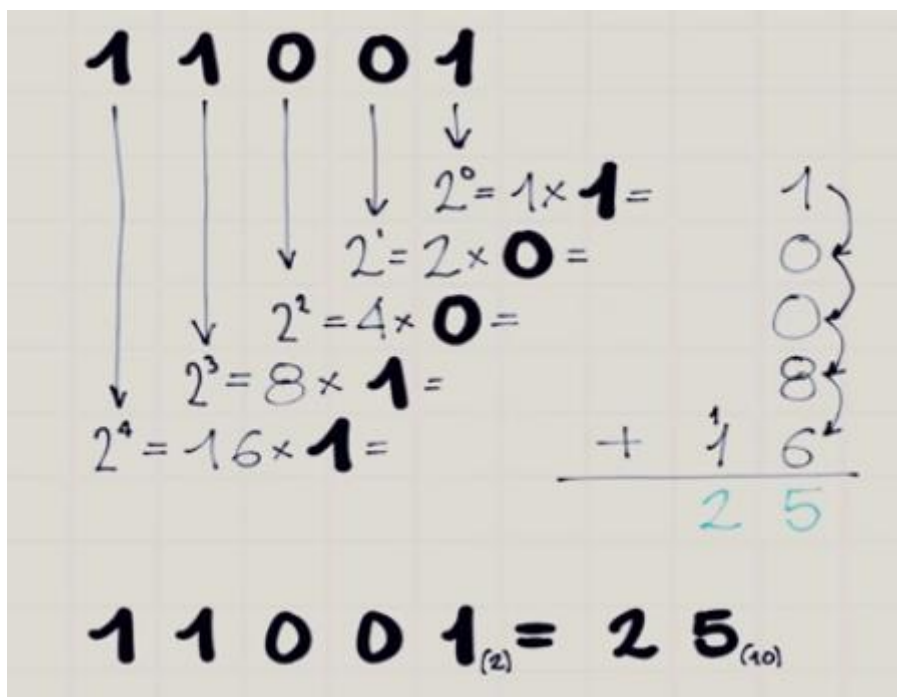 1 1 0 0 1
2⁰ = 1 × 1 = 1
2¹ = 2 × 0 = 0
2² = 4 × 0 = 0
2³ = 8 × 1 = 8
2⁴ = 16 × 1 = + ¹1 6
2 5
1 1 0 0 1(2) = 2 5(10)